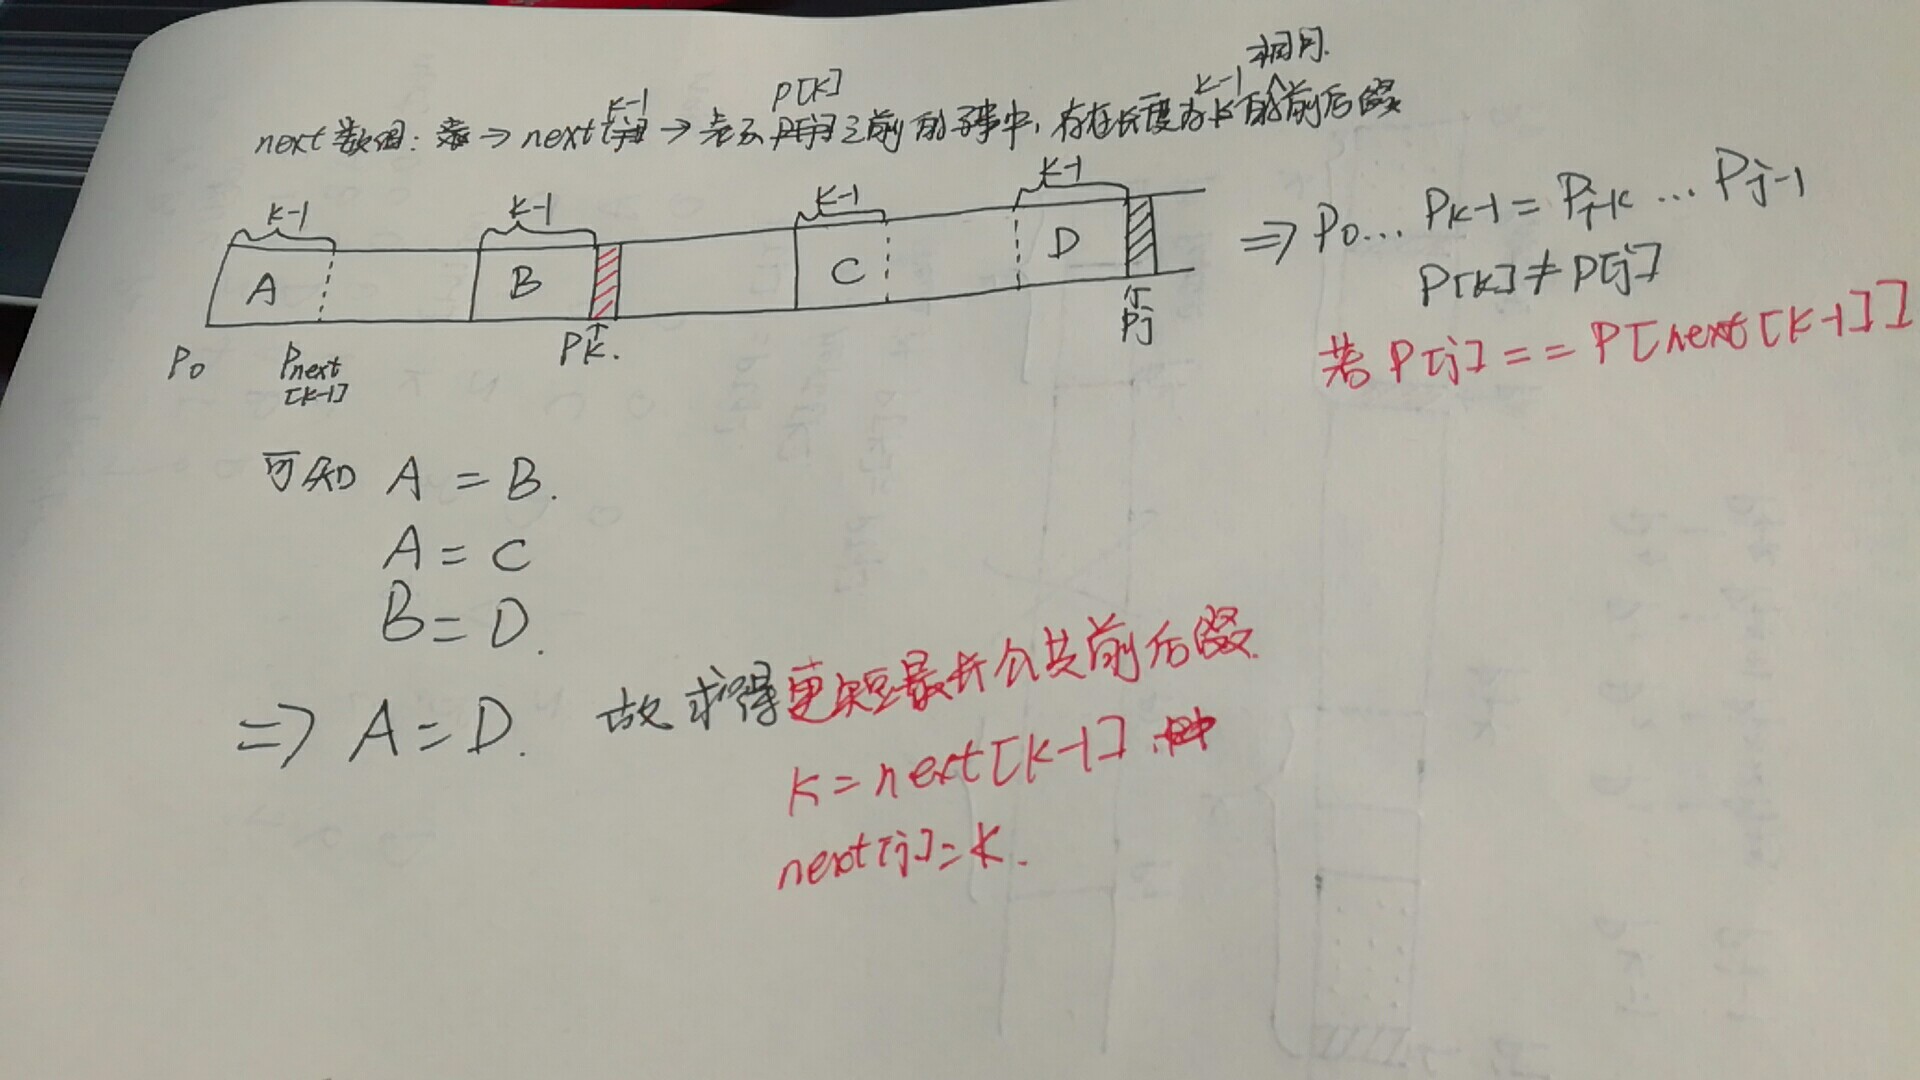 相同.
k-1 P[k] k-1
next数组: → next[] → 表示 之前的子串中, 存在长度为 的前后缀
k-1 k-1 k-1 k-1
A B C D
P0 Pnext[k-1] Pk. Pj
⇒ P0... Pk-1 = Pj-k ... Pj-1
P[k] ≠ P[j]
若 P[j] == P[next[k-1]]
可知 A = B.
A = C
B = D.
⇒ A = D. 故求得更短最长公共前后缀.
k = next[k-1].
next[j] = k.